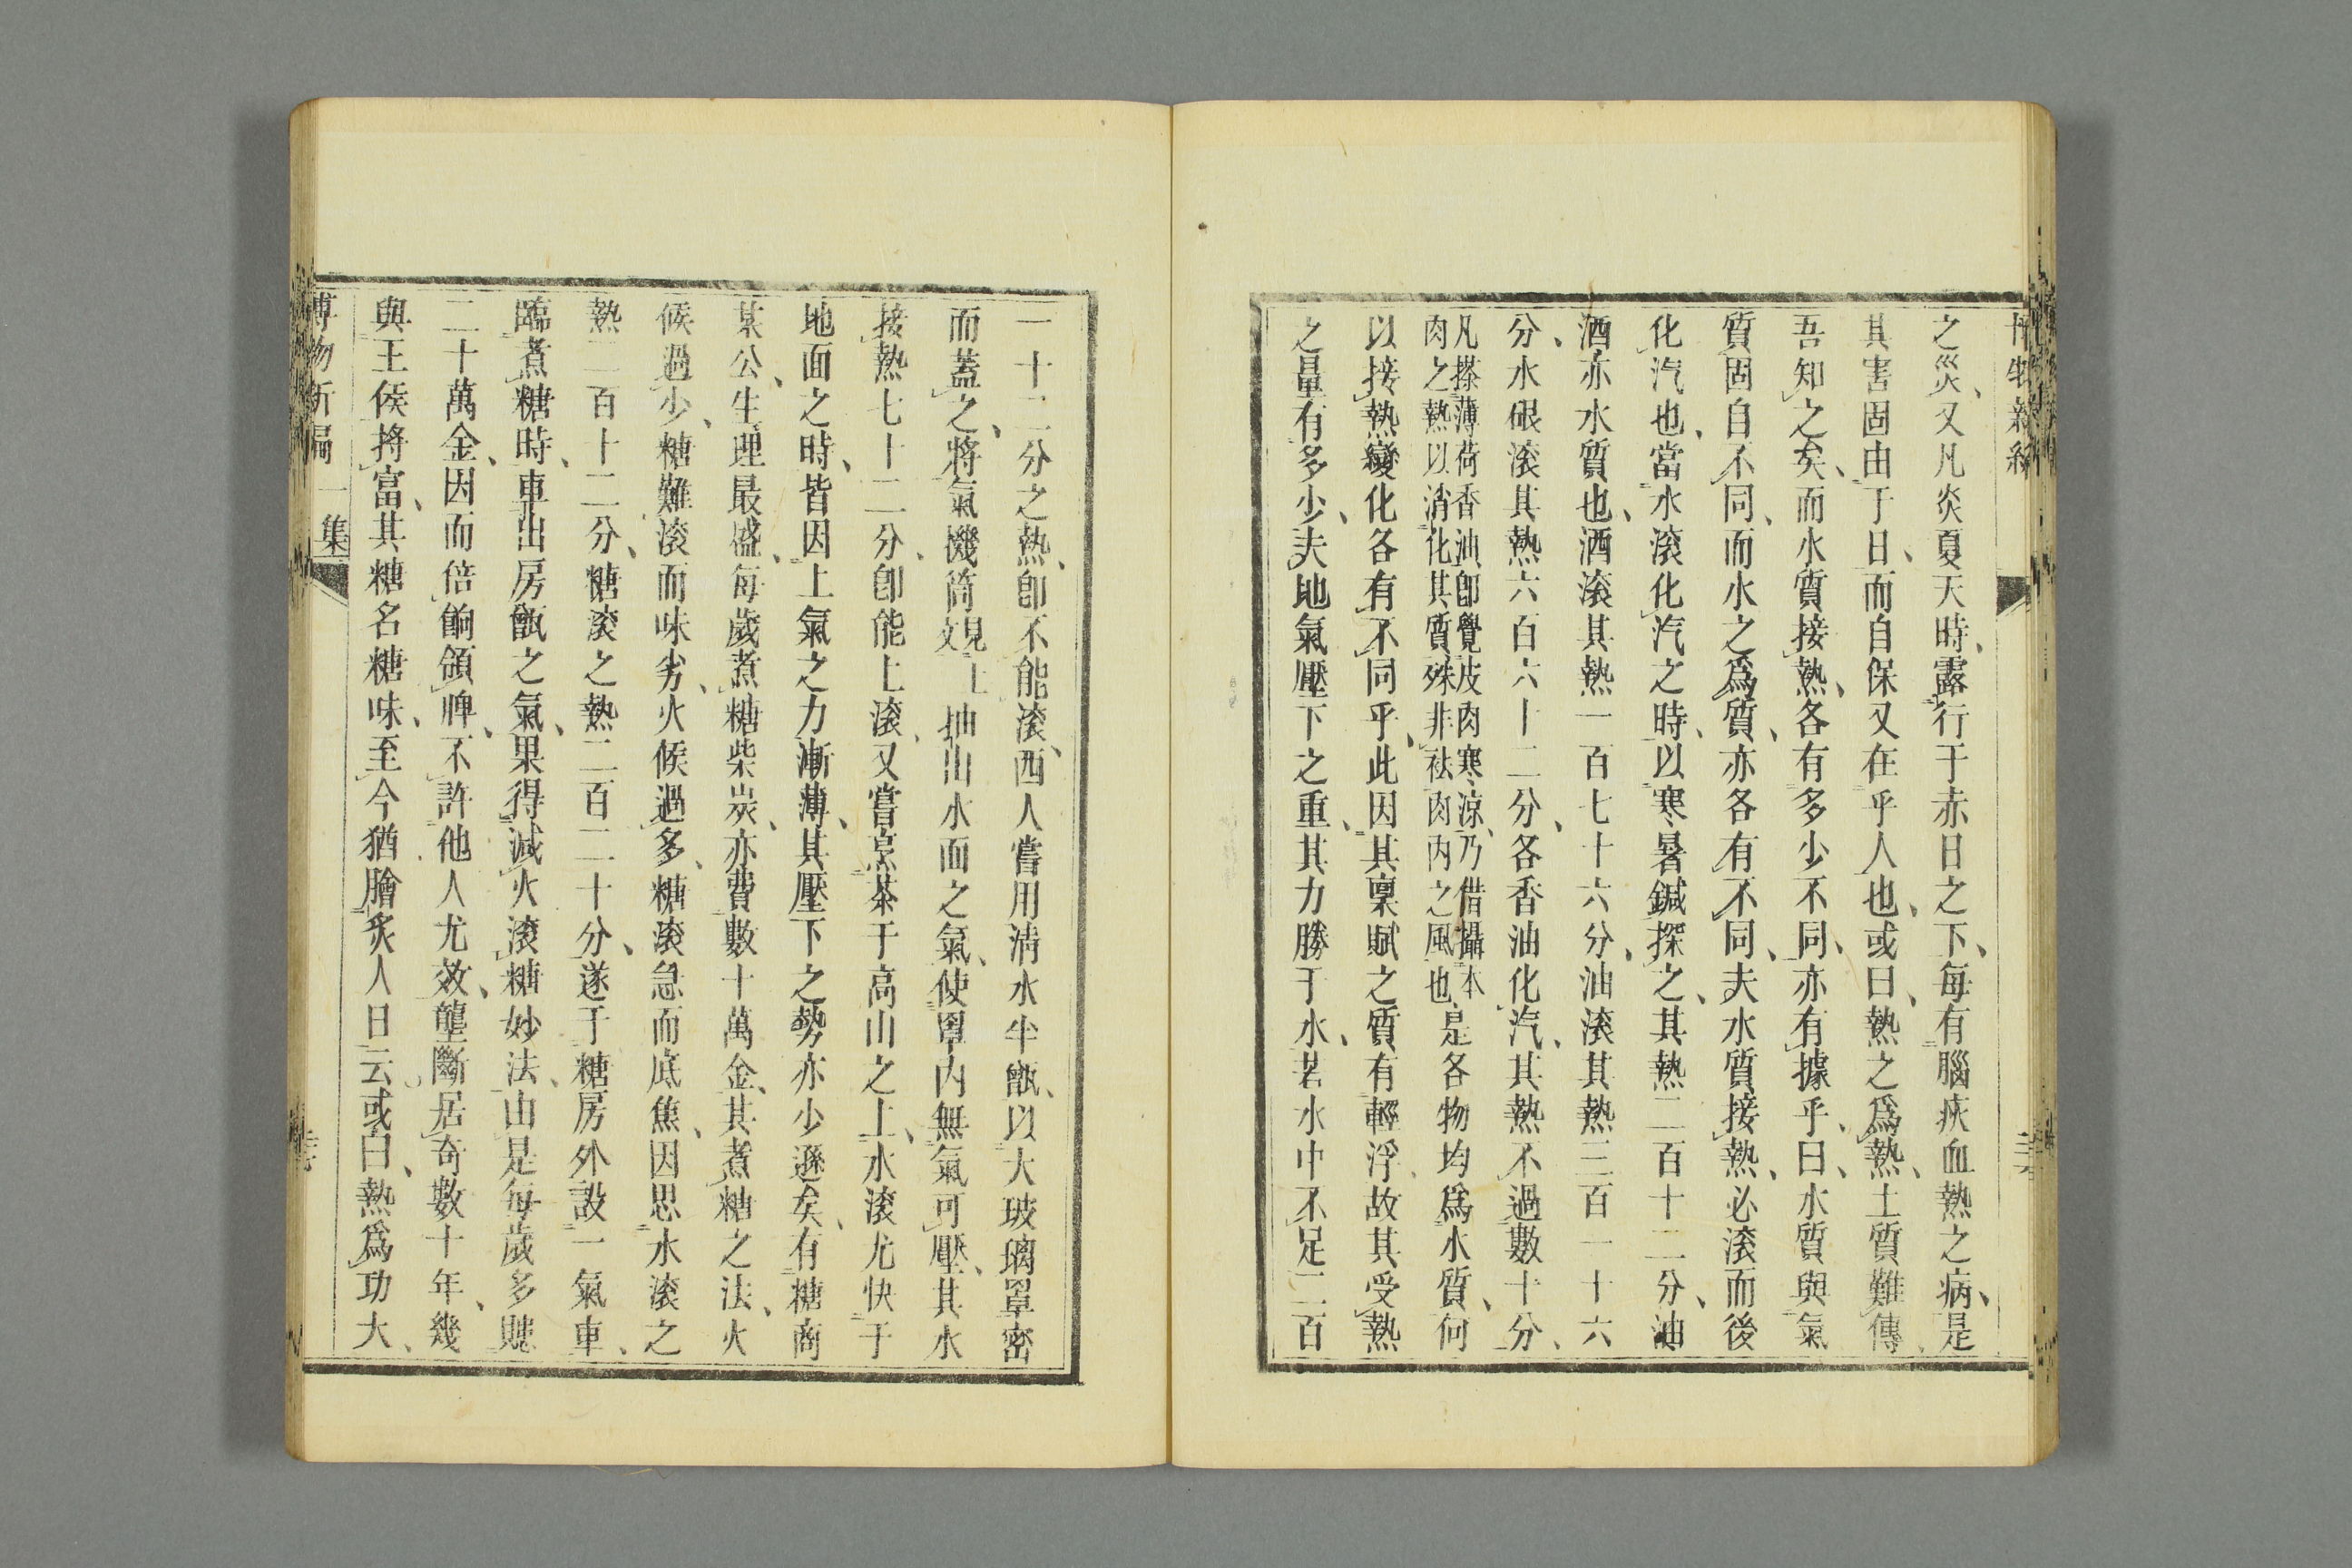 之災、又凡炎夏天時、露行于赤日之下、每有腦疾血熱之病、是
其害固由于日、而自保又在乎人也、或曰、熱之爲熱、土質難傳、
吾知之矣、而水質接熱、各有多少不同、亦有據乎、曰、水質與氣
質固自不同、而水之爲質、亦各有不同、夫水質接熱、必滾而後
化汽也、當水滾化汽之時、以寒暑鍼探之、其熱二百十二分、油
酒亦水質也、酒滾其熱一百七十六分、油滾其熱三百一十六
分、水硍滾其熱六百六十二分、各香油化汽、其熱不過數十分、
凡搽薄荷香油、卽覺皮肉寒凉、乃借攝本
肉之熱以消化其質、殊非袪肉內之風也、是各物均爲水質、何
以接熱變化各有不同乎、此因其稟賦之質有輕浮、故其受熱
之量有多少、夫地氣壓下之重、其力勝于水、若水中不足二百
一十二分之熱、卽不能滾、西人嘗用淸水半甑、以大玻璃罩密
而蓋之、將氣機筒見上文抽出水面之氣、使罩內無氣可壓、其水
接熱七十二分、卽能上滾、又嘗烹茶于高山之上、水滾尤快于
地面之時、皆因上氣之力漸薄、其壓下之勢亦少遜矣、有糖商
某公、生理最盛、每歲煮糖柴炭、亦費數十萬金、其煮糖之法、火
候過少、糖難滾而味劣、火候過多、糖滾急而底焦、因思水滾之
熱二百十二分、糖滾之熱二百二十分、遂于糖房外設一氣車、
臨煮糖時、車出房甑之氣、果得減火滾糖妙法、由是每歲多賺
二十萬金、因而倍餉領牌、不許他人尤效、壟斷居奇數十年、幾
與王侯將富、其糖名糖味、至今猶膾炙人口云、或曰、熱爲功大、
博物新編 一集